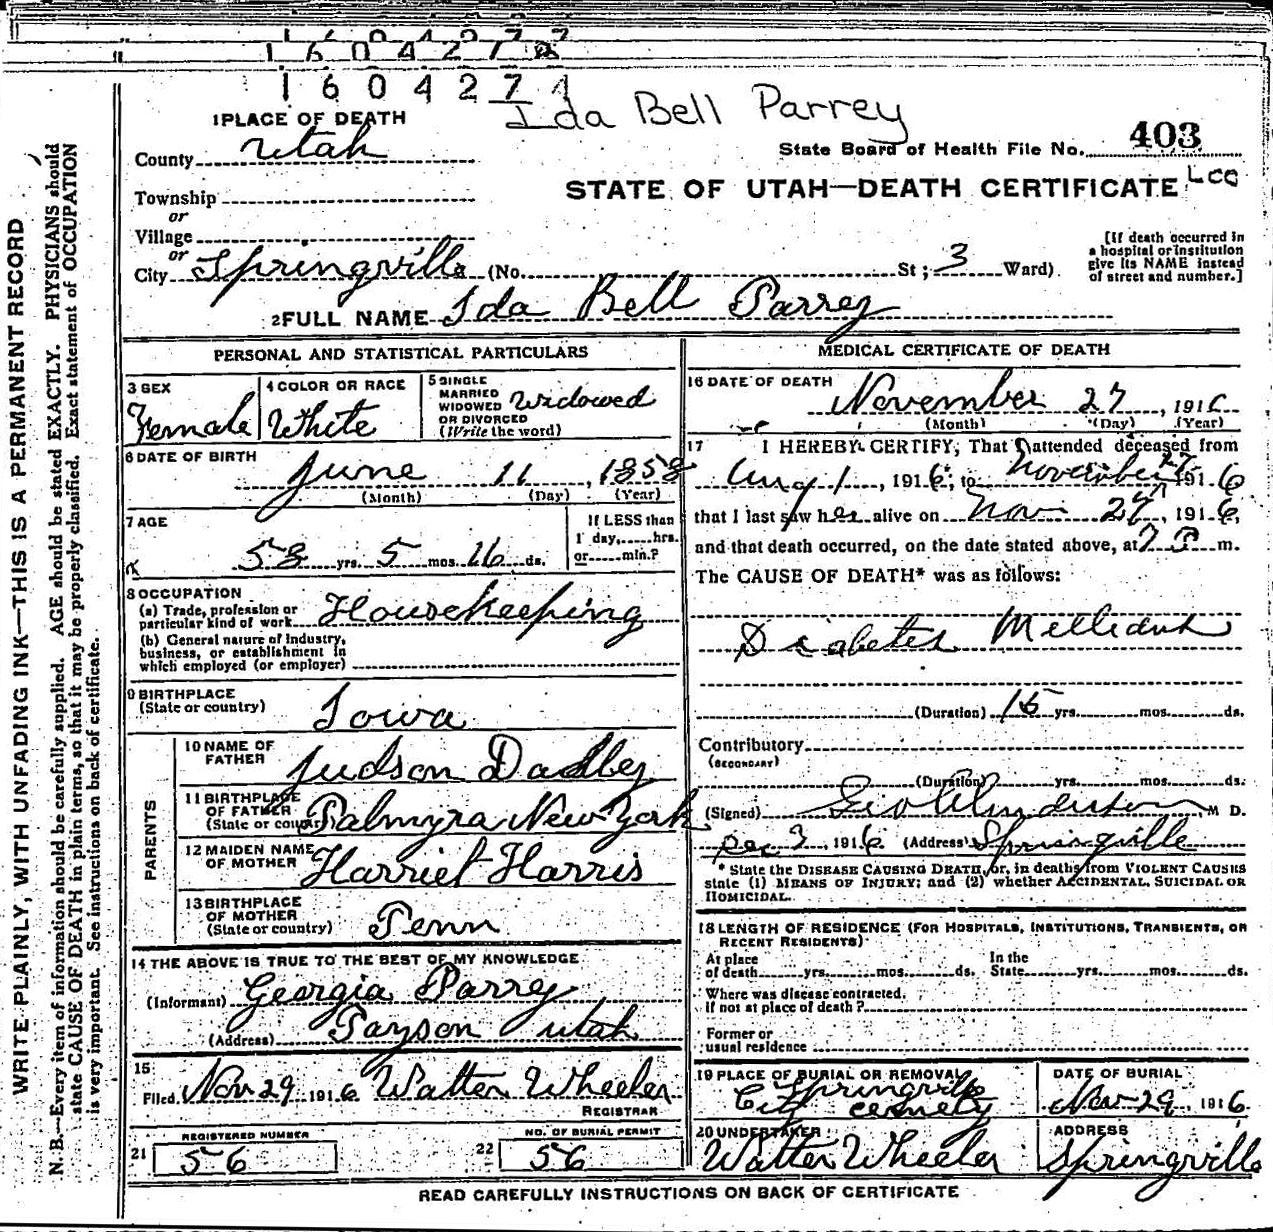 1604277
1604272
1604271
Ida Bell Parrey
1 PLACE OF DEATH
County Utah
State Board of Health File No. 403
Township
or
STATE OF UTAH—DEATH CERTIFICATE
Village
or
City Springville (No. St; 3 Ward)
[If death occurred in a hospital or institution give its NAME instead of street and number.]
2 FULL NAME Ida Bell Parrey
PERSONAL AND STATISTICAL PARTICULARS
3 SEX Female
4 COLOR OR RACE White
5 SINGLE MARRIED WIDOWED OR DIVORCED (Write the word) Widowed
6 DATE OF BIRTH June 11, 1858
(Month) (Day) (Year)
7 AGE 58 yrs. 5 mos. 16 ds.
If LESS than 1 day, hrs. or min.?
8 OCCUPATION
(a) Trade, profession or particular kind of work Housekeeping
(b) General nature of Industry, business, or establishment in which employed (or employer)
9 BIRTHPLACE (State or country) Iowa
PARENTS
10 NAME OF FATHER Judson Dadley
11 BIRTHPLACE OF FATHER (State or country) Palmyra New York
12 MAIDEN NAME OF MOTHER Harriet Harris
13 BIRTHPLACE OF MOTHER (State or country) Penn
14 THE ABOVE IS TRUE TO THE BEST OF MY KNOWLEDGE
(Informant) Georgia Parrey
(Address) Payson Utah
15 Filed Nov 29 1916 Walter Wheeler
REGISTRAR
REGISTERED NUMBER
21 56
NO. OF BURIAL PERMIT
22 56
MEDICAL CERTIFICATE OF DEATH
16 DATE OF DEATH November 27, 1916
(Month) (Day) (Year)
17 I HEREBY CERTIFY, That I attended deceased from
Aug 1, 1916, to November 27 1916
that I last saw her alive on Nov 27, 1916,
and that death occurred, on the date stated above, at 7 P m.
The CAUSE OF DEATH* was as follows:
Diabetes
(Duration) 15 yrs. mos. ds.
Contributory
(SECONDARY)
(Duration) yrs. mos. ds.
(Signed) M D.
Dec 3, 1916 (Address) Springville
* State the DISEASE CAUSING DEATH, or, in deaths from VIOLENT CAUSES
state (1) MEANS OF INJURY; and (2) whether ACCIDENTAL, SUICIDAL OR
HOMICIDAL.
18 LENGTH OF RESIDENCE (FOR HOSPITALS, INSTITUTIONS, TRANSIENTS, OR
RECENT RESIDENTS)
At place of death yrs. mos. ds. In the State yrs. mos. ds.
Where was disease contracted,
if not at place of death?
Former or
usual residence
19 PLACE OF BURIAL OR REMOVAL Springville City
DATE OF BURIAL Nov 29, 1916
20 UNDERTAKER Walter Wheeler
ADDRESS Springville
READ CAREFULLY INSTRUCTIONS ON BACK OF CERTIFICATE
WRITE PLAINLY, WITH UNFADING INK—THIS IS A PERMANENT RECORD
N. B.—Every item of information should be carefully supplied. AGE should be stated EXACTLY. PHYSICIANS should
state CAUSE OF DEATH in plain terms, so that it may be properly classified. Exact statement of OCCUPATION
is very important. See instructions on back of certificate.